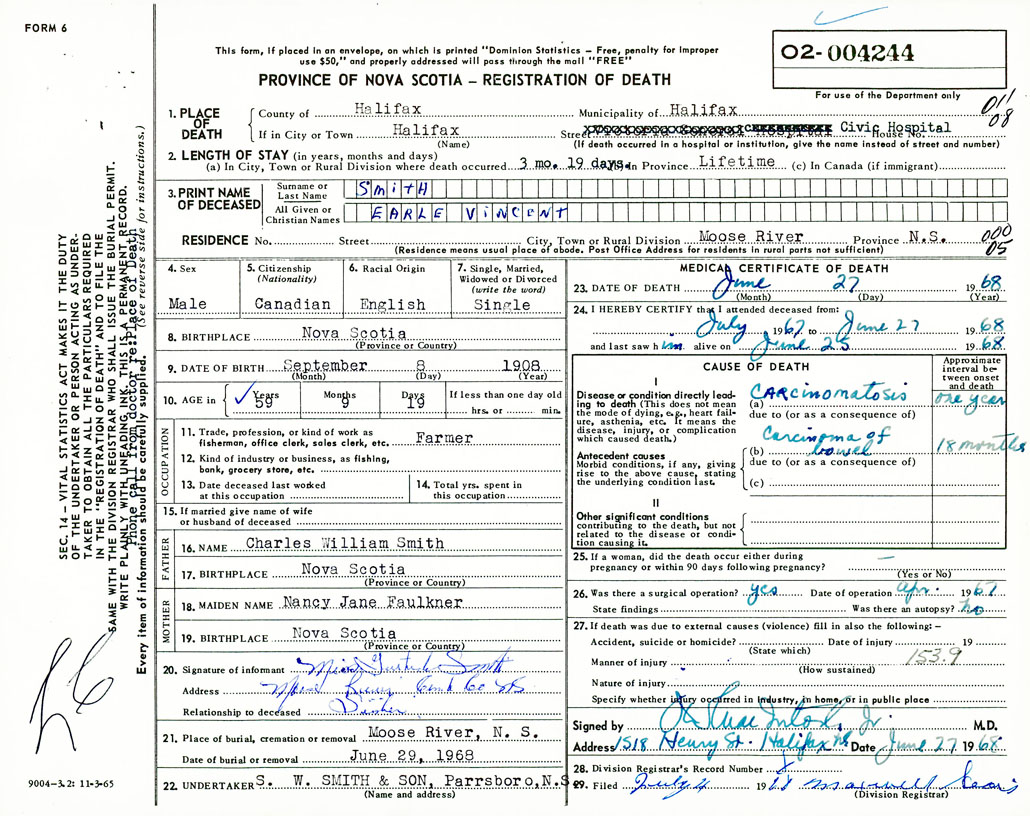 FORM 6
This form, if placed in an envelope, on which is printed "Dominion Statistics – Free, penalty for improper
use $50," and properly addressed will pass through the mail "FREE"
02-004244
For use of the Department only
PROVINCE OF NOVA SCOTIA – REGISTRATION OF DEATH
011
08
1. PLACE OF DEATH
County of Halifax Municipality of Halifax
If in City or Town Halifax Street House No. Civic Hospital
(Name) (If death occurred in a hospital or institution, give the name instead of street and number)
2. LENGTH OF STAY (in years, months and days)
(a) In City, Town or Rural Division where death occurred 3 mo. 19 days. (b) In Province Lifetime (c) In Canada (if immigrant)
3. PRINT NAME OF DECEASED
Surname or Last Name SMITH
All Given or Christian Names EARLE VINCENT
RESIDENCE No. Street City, Town or Rural Division Moose River Province N.S.
(Residence means usual place of abode. Post Office Address for residents in rural parts not sufficient)
000
05
4. Sex Male
5. Citizenship (Nationality) Canadian
6. Racial Origin English
7. Single, Married, Widowed or Divorced (write the word) Single
8. BIRTHPLACE Nova Scotia
(Province or Country)
9. DATE OF BIRTH September 8 1908
(Month) (Day) (Year)
10. AGE in Years 59 Months 9 Days 19 If less than one day old hrs. or min.
OCCUPATION
11. Trade, profession, or kind of work as
fisherman, office clerk, sales clerk, etc. Farmer
12. Kind of industry or business, as fishing,
bank, grocery store, etc.
13. Date deceased last worked
at this occupation
14. Total yrs. spent in
this occupation
15. If married give name of wife
or husband of deceased
FATHER
16. NAME Charles William Smith
17. BIRTHPLACE Nova Scotia
(Province or Country)
MOTHER
18. MAIDEN NAME Nancy Jane Faulkner
19. BIRTHPLACE Nova Scotia
(Province or Country)
20. Signature of informant Miss Gertrude Smith
Address Moose River
Relationship to deceased Sister
21. Place of burial, cremation or removal Moose River, N. S.
Date of burial or removal June 29, 1968
22. UNDERTAKER S. W. SMITH & SON, Parrsboro, N.S.
(Name and address)
MEDICAL CERTIFICATE OF DEATH
23. DATE OF DEATH June 27 1968
(Month) (Day) (Year)
24. I HEREBY CERTIFY that I attended deceased from:
July 1967 to June 27 1968
and last saw him alive on June 25 1968
CAUSE OF DEATH
Approximate interval between onset and death
I
Disease or condition directly leading
to death (This does not mean
the mode of dying, e.g., heart failure,
asthenia, etc. It means the
disease, injury, or complication
which caused death.)
(a) CARCINOMATOSIS one year
due to (or as a consequence of)
Antecedent causes
Morbid conditions, if any, giving
rise to the above cause, stating
the underlying condition last.
(b) Carcinoma of bowel 18 months
due to (or as a consequence of)
(c)
II
Other significant conditions
contributing to the death, but not
related to the disease or condition
causing it.
25. If a woman, did the death occur either during
pregnancy or within 90 days following pregnancy? —
(Yes or No)
26. Was there a surgical operation? yes Date of operation Apr. 1967
State findings Was there an autopsy? no
27. If death was due to external causes (violence) fill in also the following: –
Accident, suicide or homicide? Date of injury 19
(State which)
153.9
Manner of injury
(How sustained)
Nature of injury
Specify whether injury occurred in industry, in home, or in public place
Signed by Jr. M.D.
Address 1518 Henry St. Halifax NS Date June 27 1968
28. Division Registrar's Record Number
29. Filed July 4 1968 Maxwell
(Division Registrar)
SEC. 14 – VITAL STATISTICS ACT MAKES IT THE DUTY
OF THE UNDERTAKER OR PERSON ACTING AS UNDER-
TAKER TO OBTAIN ALL THE PARTICULARS REQUIRED
IN THE "REGISTRATION OF DEATH" AND TO FILE THE
SAME WITH THE DIVISION REGISTRAR WHO SHALL ISSUE THE BURIAL PERMIT.
WRITE PLAINLY WITH UNFADING INK. THIS IS A PERMANENT RECORD.
Phone call from doctor re: Place of Death
Every item of information should be carefully supplied. (See reverse side for instructions.)
9004-3.2: 11-3-65